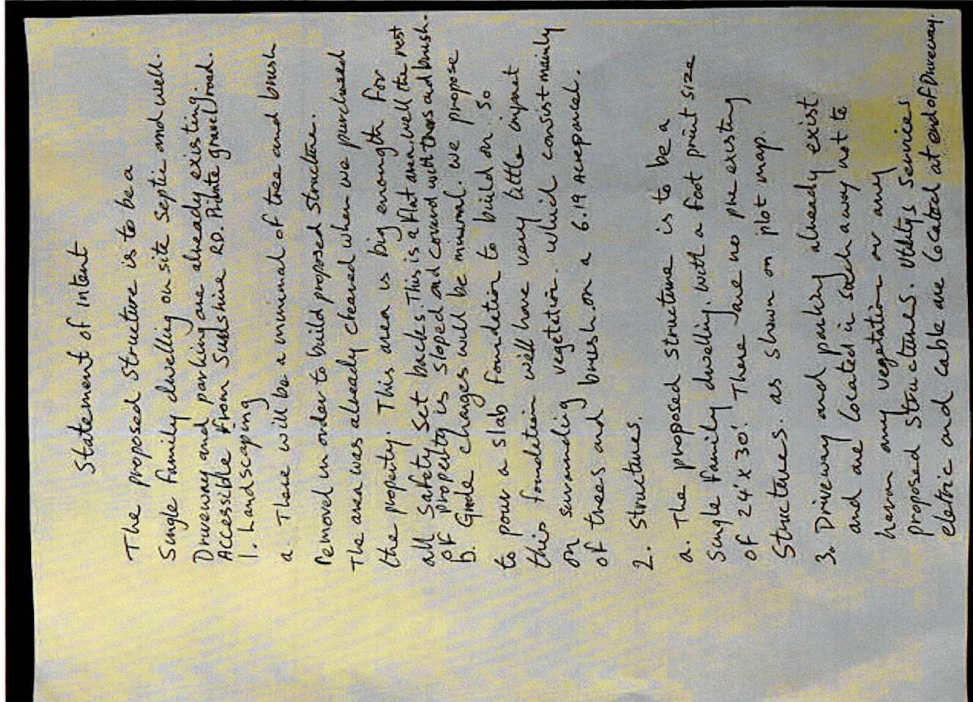 Statement of intent
The proposed structure is to be a
Single family dwelling on site Septic and well.
Driveway and parking are already existing.
Accessible from Sunshine RD. Private gravel road.
1. Landscaping
a. There will be a minimal of tree and brush
Removed in order to build proposed structure.
The area was already cleared when we purchased
the property. This area is big enought for
all Safety Set backs. This is a flat area well the rest
of property is sloped and coverd with trees and brush.
b. Grade changes will be minimal. we propose
to pour a slab foundation to build on. So
this foundation will have very little impact
on surrounding vegetation. which consist mainly
of trees and brush. on a 6.19 Acre parcel.
2. Structures.
a. The proposed structure is to be a
Single family dwelling. with a foot print size
of 24' x 30'. There are no pre existing
Structures. as shown on plot map.
3. Driveway and parking already exist
and are located in such away not to
harm any vegetation or any
proposed structures. Utilitys Services
electric and cable are located at end of Driveway.